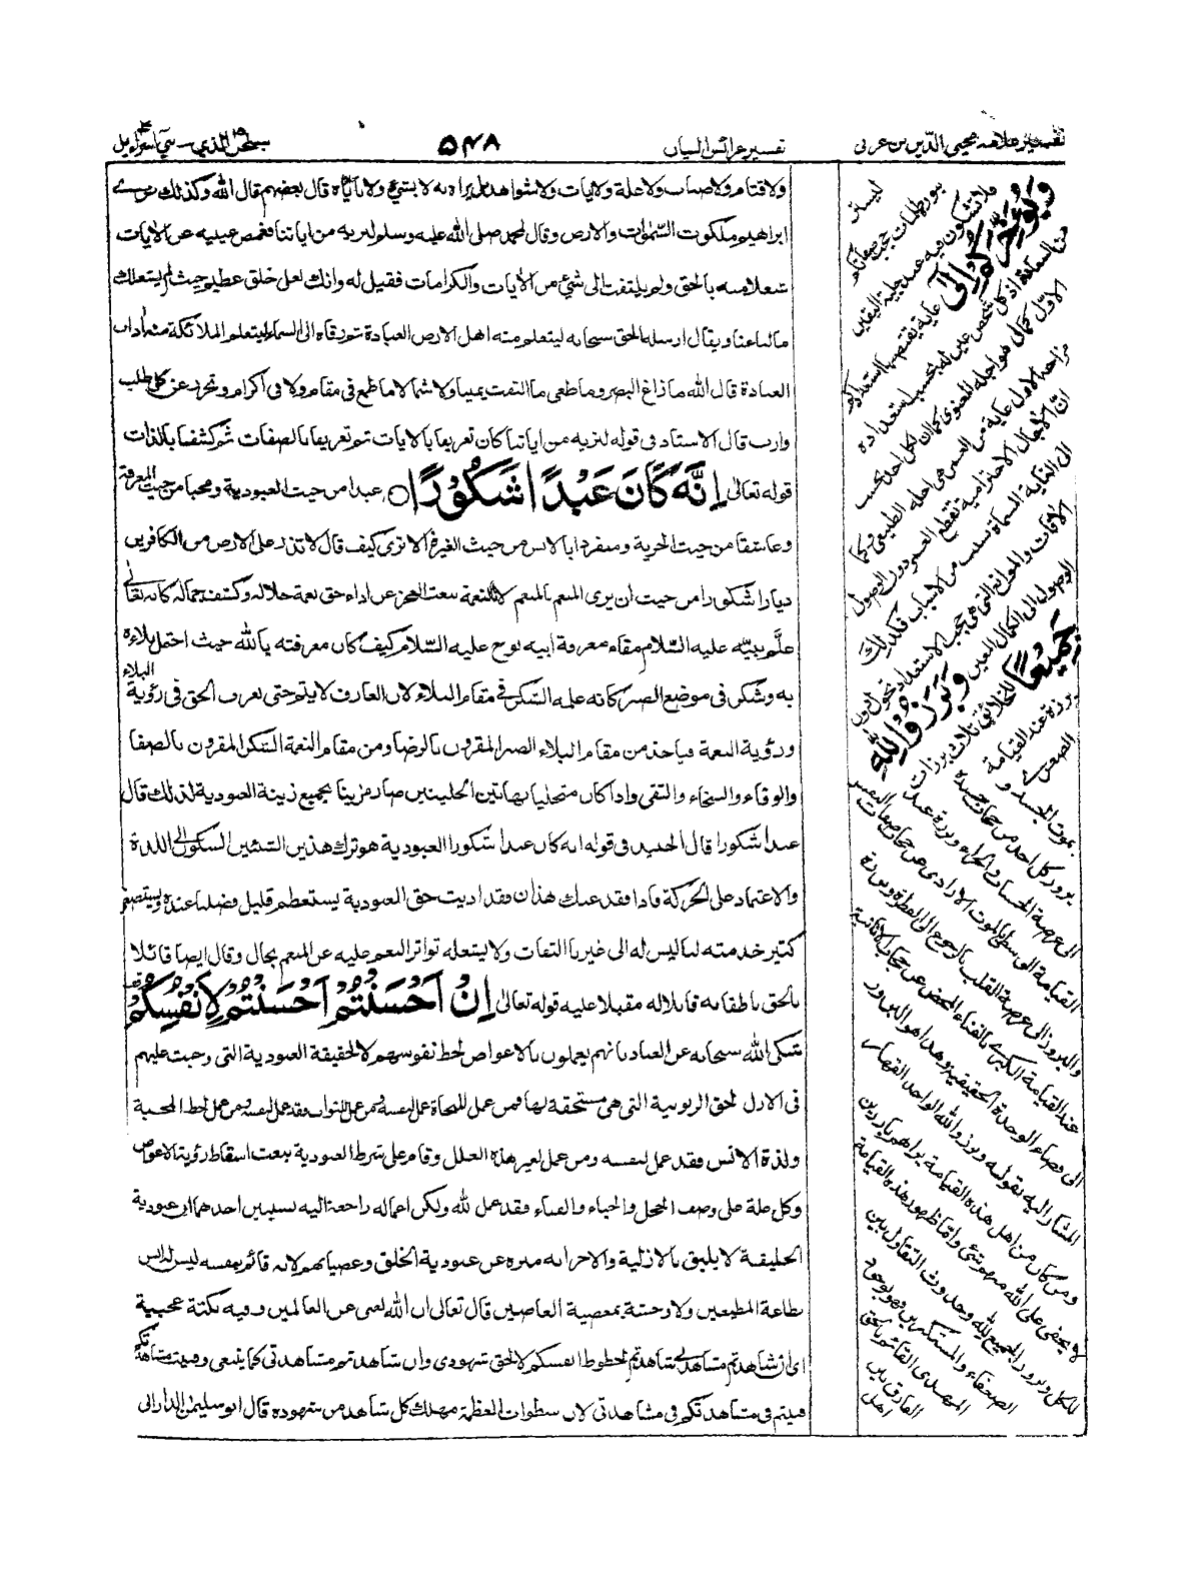 تفسير علامه محيى الدين بن عربى
تفسير عرائس البيان
٥٤٨
سبحن الذي - بني اسراءيل
ابراهيم ملكوت السموات والارض وقال لمحمد صلى الله عليه وسلم لنريه من اياتنا فغمض عينيه عن الآيات
بالحق ولم يلتفت الى شئ من الآيات والكرامات فقيل له وانك لعلى خلق عظيم حيث لم
ويقال ارسله الحق سبحانه ليتعلم منه اهل الارض العبادة ثم رقاه الى السماء ليتعلم الملائكة منه اداب
العبادة قال الله ما زاغ البصر وما طغى ما التفت يمينا ولا شمالا ما طمع فى مقام ولا فى اكرام وتحرر عن كل طلب
وارب قال الاستاد فى قوله لنريه من اياتنا كان تعريفا بالآيات ثم تعريفا بالصفات ثم كشفا بالذات
قوله تعالى اِنَّهُ كَانَ عَبْدًا شَكُوْرًا ○ عبدا من حيث العبودية ومحبا من حيث المعرفة
وعاشقا من حيث الحرية ومنفردا بالانس من حيث الغيرة الا ترى كيف قال لا تذر على الارض من الكافرين
ديارا شكورا من حيث ان يرى المنعم بالمنعم لا بالنعمة بنعت العجز عن اداء حق نعمة جلاله وكشف جماله كانه تعالى
علم نبيه عليه السلام مقام معرفة ابيه نوح عليه السلام كيف كان معرفته بالله حيث احتمل بلاءه
به وشكر فى موضع الصبر كانه عليه الشكر فى مقام البلاء لان العارف لا يتم حتى يعرف الحق فى رؤية البلاء
ورؤية النعمة فياخذ من مقام البلاء الصبر المقرون بالرضا ومن مقام النعمة الشكر المقرون بالصفا
والوفاء والسخاء والتقى واذا كان متحليا بهاتين الحليتين صار مزينا بجميع زينة العبودية لذلك قال
عبدا شكورا قال الجنيد فى قوله انه كان عبدا شكورا العبودية هو ترك هذين الشيئين السكون الى اللذة
والاعتماد على الحركة فاذا فقد عنك هذان فقد اديت حق العبودية يستعظم قليل فضلنا عنده ويستصغر
كثير خدمته لنا ليس له الى غيرنا التفات ولا يشغله تواتر النعم عليه عن المنعم بحال وقال ايضا قائلا
بالحق ناطقا به قابلا له مقبلا عليه قوله تعالى اِنْ اَحْسَنْتُمْ اَحْسَنْتُمْ لِاَنْفُسِكُمْ
شكى الله سبحانه عن العباد بانهم يعملون بالاعواض لحظ نفوسهم لا لحقيقة العبودية التى وجبت عليهم
فى الازل لحق الربوبية التى هى مستحقة لها فمن عمل للنجاة عمل لنفسه ومن عمل للثواب فقد عمل لنفسه ومن عمل لحظ المحبة
ولذة الانس فقد عمل لنفسه ومن عمل لغير هذه العلل وقام على شرط العبودية بنعت اسقاط رؤية الاعواض
وكل علة على وصف الخجل والحياء والفناء فقد عمل لله ولكن اعماله راجعة اليه بسببين احدهما ان عبودية
الخليقة لا يليق بالازلية والاخر انه منزه عن عبودية الخلق وعصيانهم لانه قائم بنفسه ليس له انس
بطاعة المطيعين ولا وحشة بمعصية العاصين قال تعالى ان الله لغنى عن العالمين وفيه نكتة عجيبة
اى ان شاهدتم مشاهدتى شاهدتم لحظوظ انفسكم لا لحق شهودى وان شاهدتم مشاهدتى كما ينبغى
فنيتم فى مشاهدتكم فى مشاهدتى لان سطوات العظمة مهلك كل شاهد من شهوده قال ابو سليمن الدارانى
من السعادة اذ كل شخص عين له بحسب استعداده
الاول كمال هو اجله المعنوى كما ان لكل احد بحسب
مزاجه الاول غاية من العمر هى اجله الطبيعى وكما
ان الآجال الاخترامية تقطع العمر دون الوصول
الى الغاية المسماة بسبب من الاسباب فكذلك
الآفات والموانع التى هى حجب الاستعداد تحول دون
الوصول الى الكمال المعين وَبَرَزُوْا لِلّٰهِ
جَمِيْعًا للخلائق ثلاث برزات
برزة عند القيامة
الصغرى
بموت الجسد و
بروز كل احد من حجاب جسده
الى عرصة الحساب والجزاء وبرزة عند
القيامة الوسطى بالموت الارادى عن حجاب صفات النفس
والبروز الى عرصة القلب بالرجوع الى الفطرة وبرزة
عند القيامة الكبرى بالفناء المحض عن حجاب الانانية
الى فضاء الوحدة الحقيقية وهذا هو البروز
المشار اليه بقوله وبرزوا لله الواحد القهار
ومن كان من اهل هذه القيامة يراهم بارزين
لا يخفى على الله منهم شئ واما ظهور هذه القيامة
للكل وبروز الجميع لله وحدوث التقاول بين
الضعفاء والمستكبرين فهو بوجود
المهدى القائم بالحق
الفارق بين
اهل